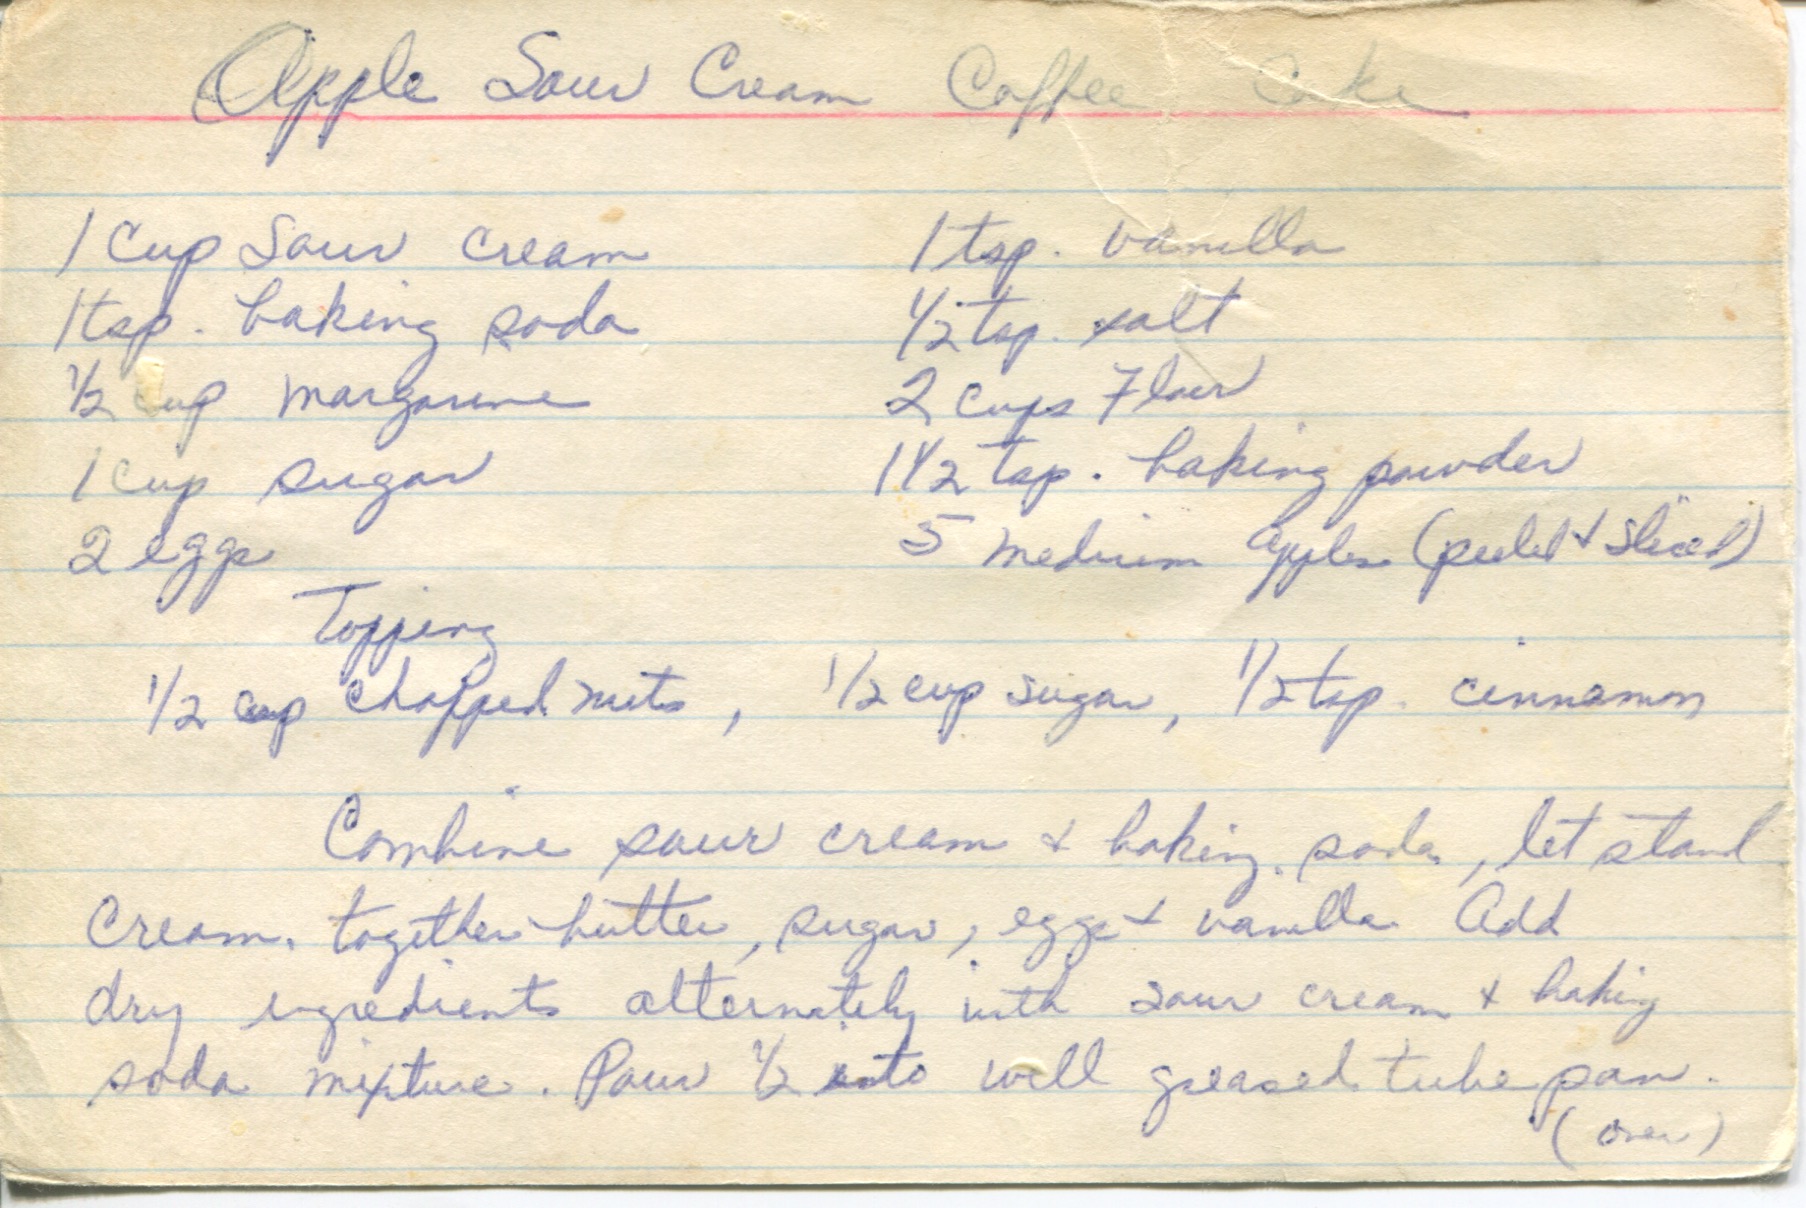 Apple Sour Cream Coffee Cake
1 Cup Sour cream
1 tsp. baking soda
1/2 cup margarine
1 cup sugar
2 eggs
1 tsp. vanilla
1/2 tsp. salt
2 cups Flour
1 1/2 tsp. baking powder
5 medium apples (peeled & sliced)
Topping
1/2 cup chopped nuts, 1/2 cup sugar, 1/2 tsp. cinnamon
Combine sour cream & baking soda, let stand
Cream together butter, sugar, eggs & vanilla Add
dry ingredients alternately with sour cream & baking
soda mixture. Pour 1/2 into well greased tube pan.
(over)